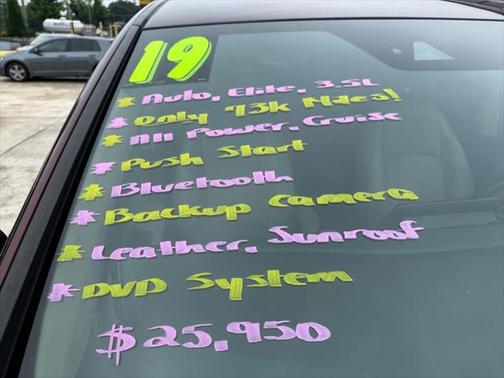 19
* Auto, Elite, 3.5L
* Only 93k Miles!
* All Power, Cruise
* Push Start
* Bluetooth
* Backup Camera
* Leather, Sunroof
* DVD System
$25,950